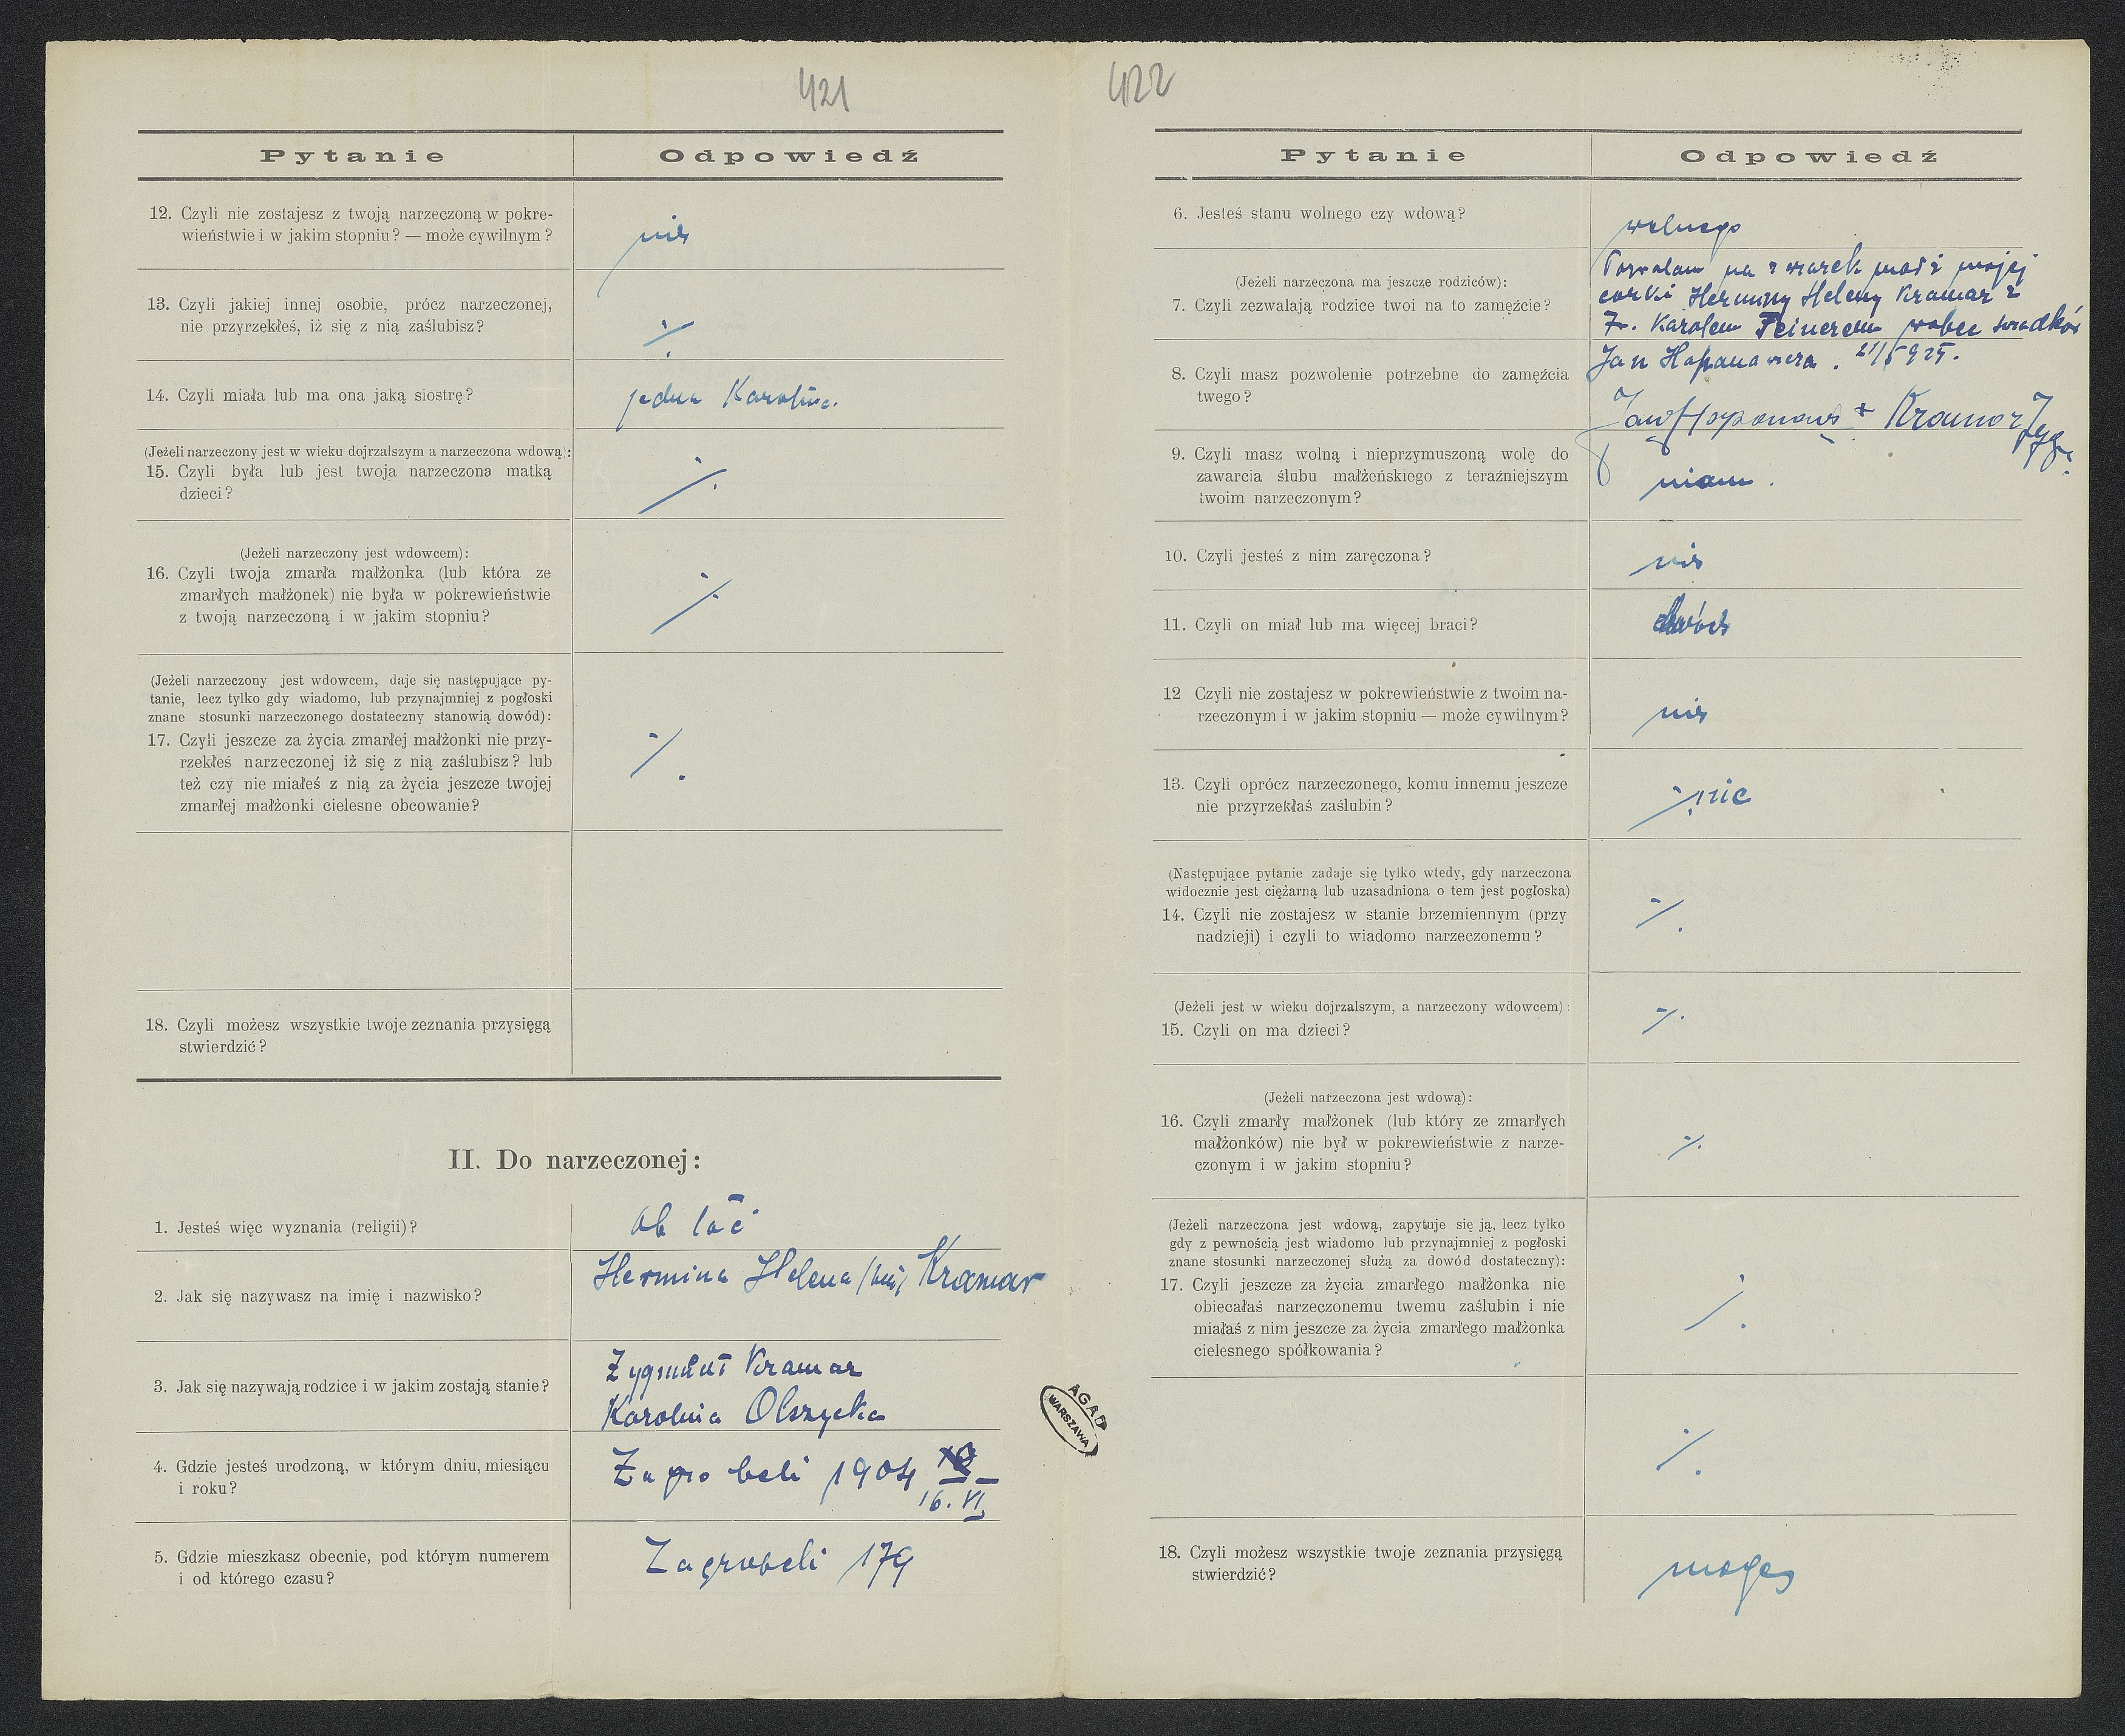 421
Pytanie Odpowiedź
12. Czyli nie zostajesz z twoją narzeczoną w pokre-
wieństwie i w jakim stopniu? — może cywilnym?
nie
13. Czyli jakiej innej osobie, prócz narzeczonej,
nie przyrzekłeś, iż się z nią zaślubisz?
·/.
14. Czyli miała lub ma ona jaką siostrę?
jedna Karolina.
(Jeżeli narzeczony jest w wieku dojrzalszym a narzeczona wdową):
15. Czyli była lub jest twoja narzeczona matką
dzieci?
·/.
(Jeżeli narzeczony jest wdowcem):
16. Czyli twoja zmarła małżonka (lub która ze
zmarłych małżonek) nie była w pokrewieństwie
z twoją narzeczoną i w jakim stopniu?
·/.
(Jeżeli narzeczony jest wdowcem, daje się następujące py-
tanie, lecz tylko gdy wiadomo, lub przynajmniej z pogłoski
znane stosunki narzeczonego dostateczny stanowią dowód):
17. Czyli jeszcze za życia zmarłej małżonki nie przy-
rzekłeś narzeczonej iż się z nią zaślubisz? lub
też czy nie miałeś z nią za życia jeszcze twojej
zmarłej małżonki cielesne obcowanie?
·/.
18. Czyli możesz wszystkie twoje zeznania przysięgą
stwierdzić?
II. Do narzeczonej:
1. Jesteś więc wyznania (religii)?
ob łać
2. Jak się nazywasz na imię i nazwisko?
Hermina Helena Kramar
3. Jak się nazywają rodzice i w jakim zostają stanie?
Zygmunt Kramar
Karolina Olszycka
4. Gdzie jesteś urodzoną, w którym dniu, miesiącu
i roku?
Zagrobeli 1904
16. VI
5. Gdzie mieszkasz obecnie, pod którym numerem
i od którego czasu?
Zagrobeli 179
AGAD
WARSZAWA
422
Pytanie Odpowiedź
6. Jesteś stanu wolnego czy wdową?
wolnego
(Jeżeli narzeczona ma jeszcze rodziców):
7. Czyli zezwalają rodzice twoi na to zamęźcie?
Pozwalam na mojej
corki Herminy Heleny Kramar z
Karolem Feinerem wobec swiadków
Jan 21/5 925.
8. Czyli masz pozwolenie potrzebne do zamęźcia
twego?
Kramar Zyg.
9. Czyli masz wolną i nieprzymuszoną wolę do
zawarcia ślubu małżeńskiego z teraźniejszym
twoim narzeczonym?
mam.
10. Czyli jesteś z nim zaręczona?
nie
11. Czyli on miał lub ma więcej braci?
dwóch
12 Czyli nie zostajesz w pokrewieństwie z twoim na-
rzeczonym i w jakim stopniu — może cywilnym?
nie
13. Czyli oprócz narzeczonego, komu innemu jeszcze
nie przyrzekłaś zaślubin?
·/. nie
(Następujące pytanie zadaje się tylko wtedy, gdy narzeczona
widocznie jest ciężarną lub uzasadniona o tem jest pogłoska)
14. Czyli nie zostajesz w stanie brzemiennym (przy
nadzieji) i czyli to wiadomo narzeczonemu?
·/.
(Jeżeli jest w wieku dojrzalszym, a narzeczony wdowcem):
15. Czyli on ma dzieci?
·/.
(Jeżeli narzeczona jest wdową):
16. Czyli zmarły małżonek (lub który ze zmarłych
małżonków) nie był w pokrewieństwie z narze-
czonym i w jakim stopniu?
·/.
(Jeżeli narzeczona jest wdową, zapytuje się ją, lecz tylko
gdy z pewnością jest wiadomo lub przynajmniej z pogłoski
znane stosunki narzeczonej służą za dowód dostateczny):
17. Czyli jeszcze za życia zmarłego małżonka nie
obiecałaś narzeczonemu twemu zaślubin i nie
miałaś z nim jeszcze za życia zmarłego małżonka
cielesnego spółkowania?
·/.
·/.
18. Czyli możesz wszystkie twoje zeznania przysięgą
stwierdzić?
mogę